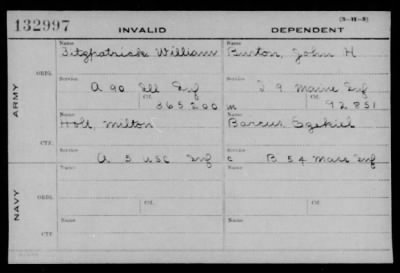 (3-H-8)
132997 INVALID DEPENDENT
Name Name
Fitzpatrick William Burton, John H
ORIG.
Service Service
A 90 Ill Inf I 9 Maine Inf
Ctf. Ctf.
865200 m 92851
ARMY
Name Name
Holt, Milton Barcus, Ezekiel
CTF.
Service Service
A. 5 U.S.C. Inf c B 54 Mass Inf
Name Name
ORIG.
Service Service
Ctf. Ctf.
NAVY
Name Name
CTF.
Service Service